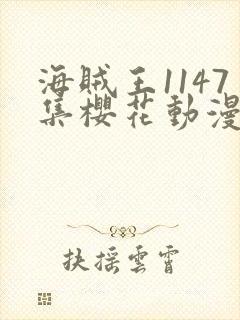 海賊王1147
集櫻花動漫
扶摇雲霄